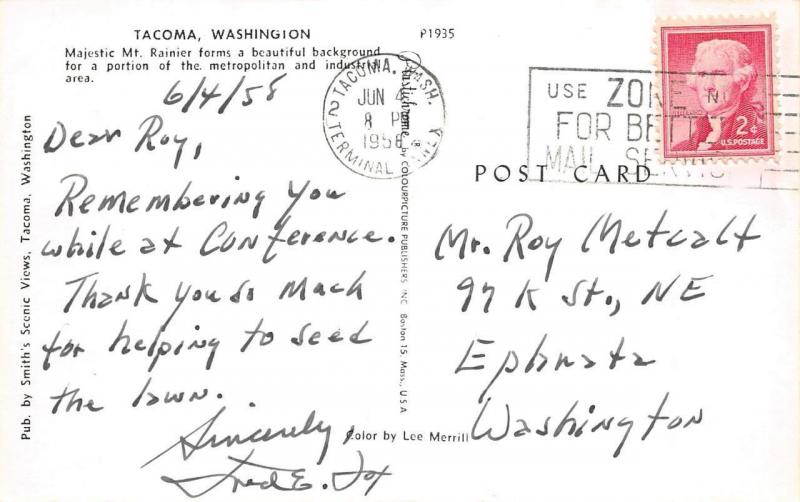 TACOMA, WASHINGTON
Majestic Mt. Rainier forms a beautiful background
for a portion of the metropolitan and industrial
area.
P1935
6/4/58
Dear Roy,
Remembering You
while at Conference.
Thank you so Much
for helping to seed
the lawn.
Sincerely,
Fred E.
Pub. by Smith's Scenic Views, Tacoma, Washington
Color by Lee Merrill
Plastichrome by COLOURPICTURE PUBLISHERS, INC. Boston 15, Mass., U.S.A.
TACOMA, WASH.
JUN 4
8 PM
1958
TERMINAL ANNEX
2
USE ZONE NO
FOR BETT
MAIL SERVIC
2¢
U.S. POSTAGE
POST CARD
Mr. Roy Metcalf
97 K St., NE
Ephrata
Washington